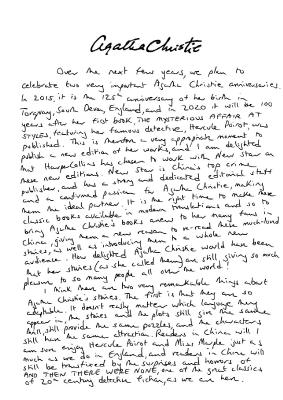 Agatha Christie
Over the next few years, we plan to
celebrate two very important Agatha Christie anniversaries.
In 2015, it is the 125th anniversary of her birth in
Torquay, South Devon, England, and in 2020 it will be 100
years after her first book, THE MYSTERIOUS AFFAIR AT
STYLES, featuring her famous detective, Hercule Poirot, was
published. This is therefore a very appropriate moment to
publish a new edition of her works, and I am delighted
that HarperCollins has chosen to work with New Star on
these new editions. New Star is China's top crime
publisher, and has a strong and dedicated editorial staff
and a confirmed passion for Agatha Christie, making
them the ideal partner. It is the right time to make these
classic books available in modern translations and so to
bring Agatha Christie's books anew to her many fans in
China, giving them a new reason to re-read these much-loved
stories, as well as introducing them to a whole new
audience. How delighted Agatha Christie would have been
that her stories (as she called them) are still giving so much
pleasure to so many people all over the world!
I think there are two very remarkable things about
Agatha Christie's stories. The first is that they are so
adaptable. It doesn't really matter which language they
appear in, the stories and the plots still give the reader
still provide the same puzzles, and the characters
still have the same attraction. Readers in China will I
am sure enjoy Hercule Poirot and Miss Marple just as
much as we do in England, and readers in China will
still be transfixed by the surprises and horrors of
AND THEN THERE WERE NONE, one of the great classics
of 20th century detective fiction, as we are here.